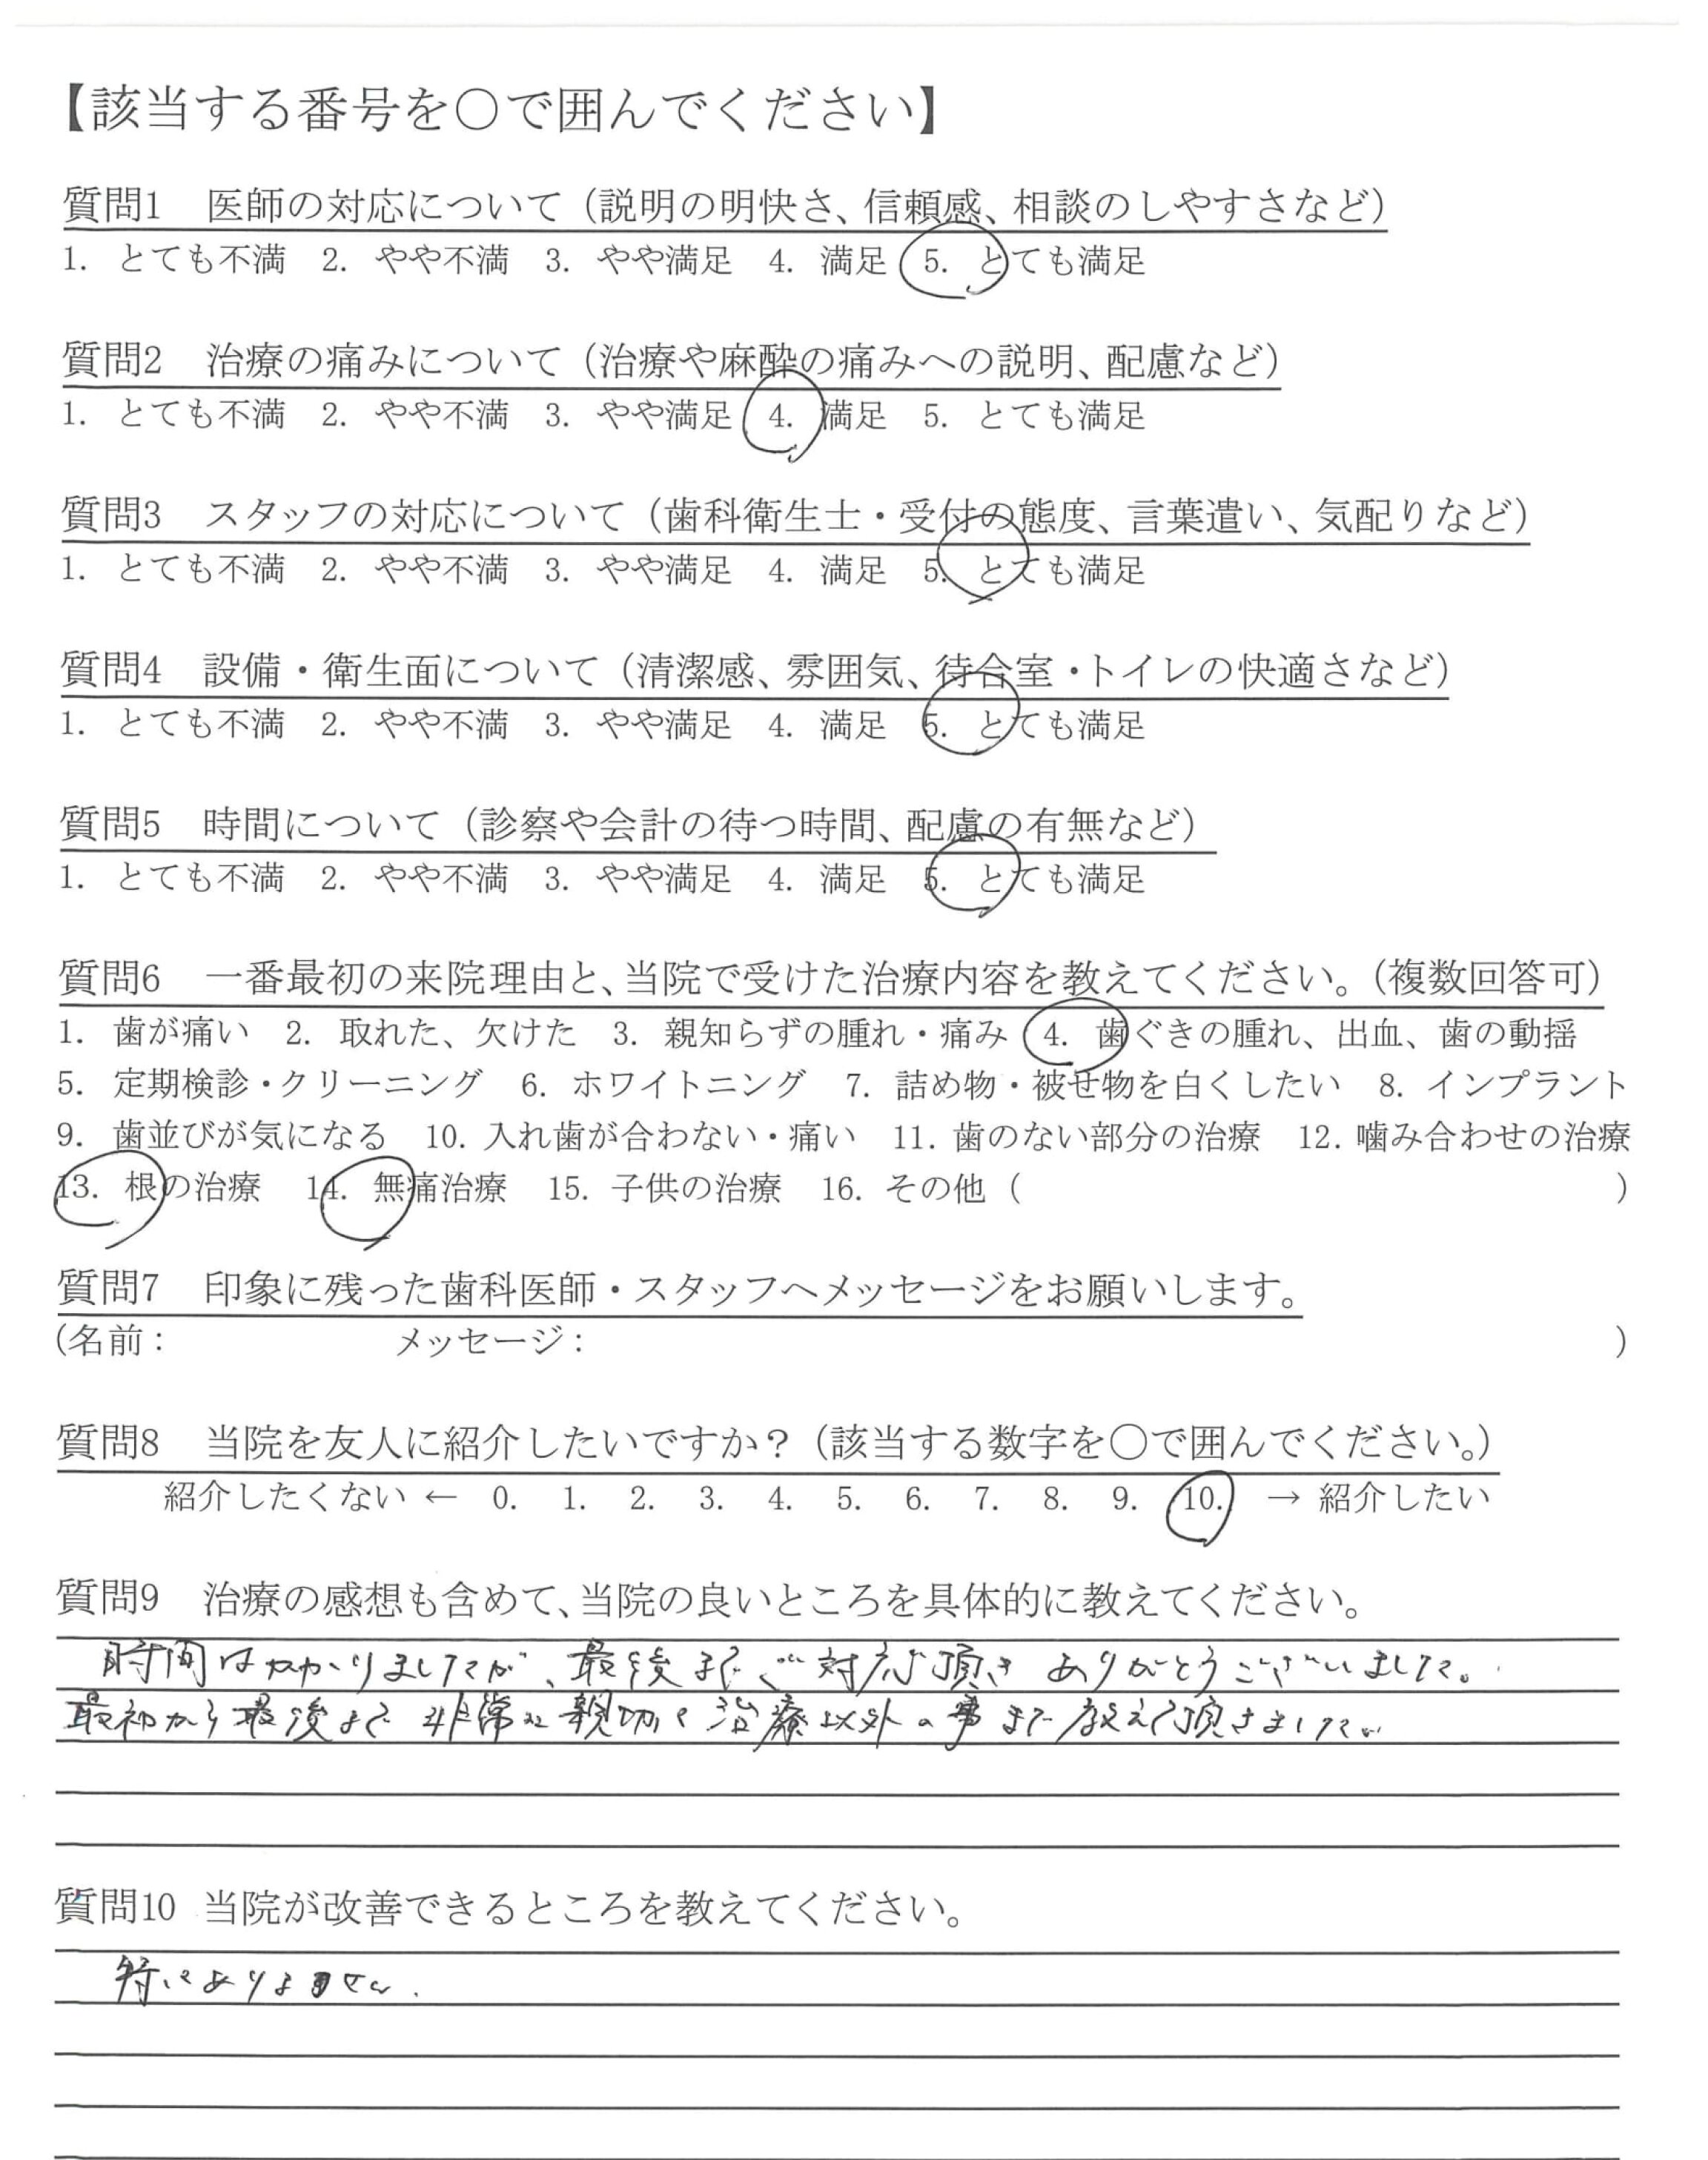 【該当する番号を○で囲んでください】
質問1 医師の対応について（説明の明快さ、信頼感、相談のしやすさなど）
1. とても不満 2. やや不満 3. やや満足 4. 満足 5. とても満足
質問2 治療の痛みについて（治療や麻酔の痛みへの説明、配慮など）
1. とても不満 2. やや不満 3. やや満足 4. 満足 5. とても満足
質問3 スタッフの対応について（歯科衛生士・受付の態度、言葉遣い、気配りなど）
1. とても不満 2. やや不満 3. やや満足 4. 満足 5. とても満足
質問4 設備・衛生面について（清潔感、雰囲気、待合室・トイレの快適さなど）
1. とても不満 2. やや不満 3. やや満足 4. 満足 5. とても満足
質問5 時間について（診察や会計の待つ時間、配慮の有無など）
1. とても不満 2. やや不満 3. やや満足 4. 満足 5. とても満足
質問6 一番最初の来院理由と、当院で受けた治療内容を教えてください。（複数回答可）
1. 歯が痛い 2. 取れた、欠けた 3. 親知らずの腫れ・痛み 4. 歯ぐきの腫れ、出血、歯の動揺
5. 定期検診・クリーニング 6. ホワイトニング 7. 詰め物・被せ物を白くしたい 8. インプラント
9. 歯並びが気になる 10. 入れ歯が合わない・痛い 11. 歯のない部分の治療 12. 噛み合わせの治療
13. 根の治療 14. 無痛治療 15. 子供の治療 16. その他（ ）
質問7 印象に残った歯科医師・スタッフへメッセージをお願いします。
(名前： メッセージ： )
質問8 当院を友人に紹介したいですか？（該当する数字を○で囲んでください。）
紹介したくない ← 0. 1. 2. 3. 4. 5. 6. 7. 8. 9. 10. → 紹介したい
質問9 治療の感想も含めて、当院の良いところを具体的に教えてください。
時間はかかりましたが、最後までご対応頂きありがとうございました。
最初から最後まで非常に親切で治療以外の事まで教えて頂きました。
質問10 当院が改善できるところを教えてください。
特にありません.